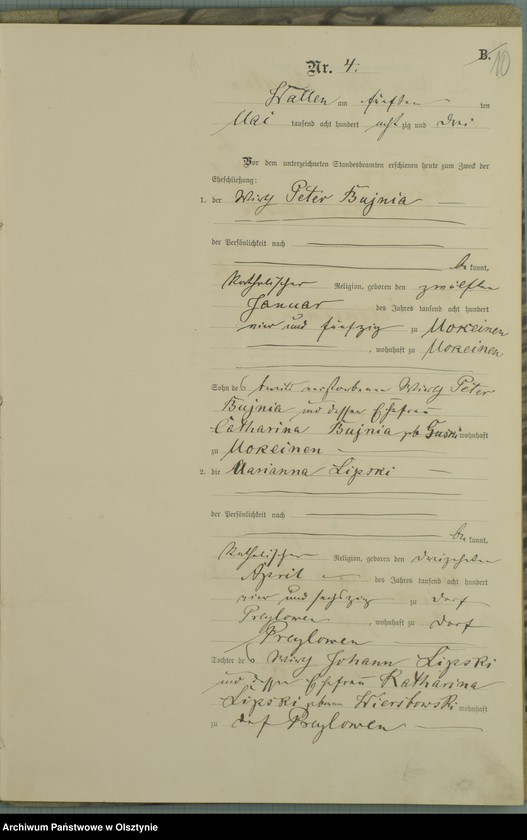 B.
10
Nr. 4.
Wallen am fünften ten
Mai tausend acht hundert achtzig und drei
Vor dem unterzeichneten Standesbeamten erschienen heute zum Zweck der
Eheschließung:
1. der Wirth Peter Bujnia
der Persönlichkeit nach
be kannt,
katholischer Religion, geboren den zwölften
Januar des Jahres tausend acht hundert
vier und fünfzig zu Mokeinen
, wohnhaft zu Mokeinen
Sohn des bereits verstorbenen Wirth Peter
Bujnia und dessen Ehefrau
Catharina Bujnia geb Guski wohnhaft
zu Mokeinen
2. die Marianna Lipski
der Persönlichkeit nach
be kannt,
katholischer Religion, geboren den dreizehnten
April des Jahres tausend acht hundert
vier und sechszig zu Dorf
Preylowen , wohnhaft zu Dorf
Preylowen
Tochter des Wirth Johann Lipski
und dessen Ehefrau Katharina
Lipski geborne Wiersbowski wohnhaft
zu Dorf Preylowen
Archiwum Państwowe w Olsztynie